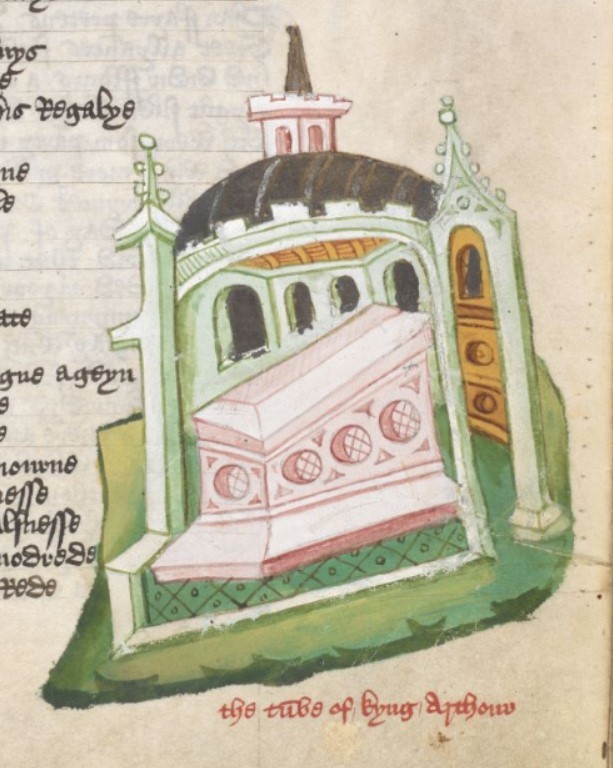 nys
e
ns Regalye
ne
e
ate
gne ageyn
e
e
mowne
nesse
alsnesse
modrede
Rede
the tūbe of kyng Arthour